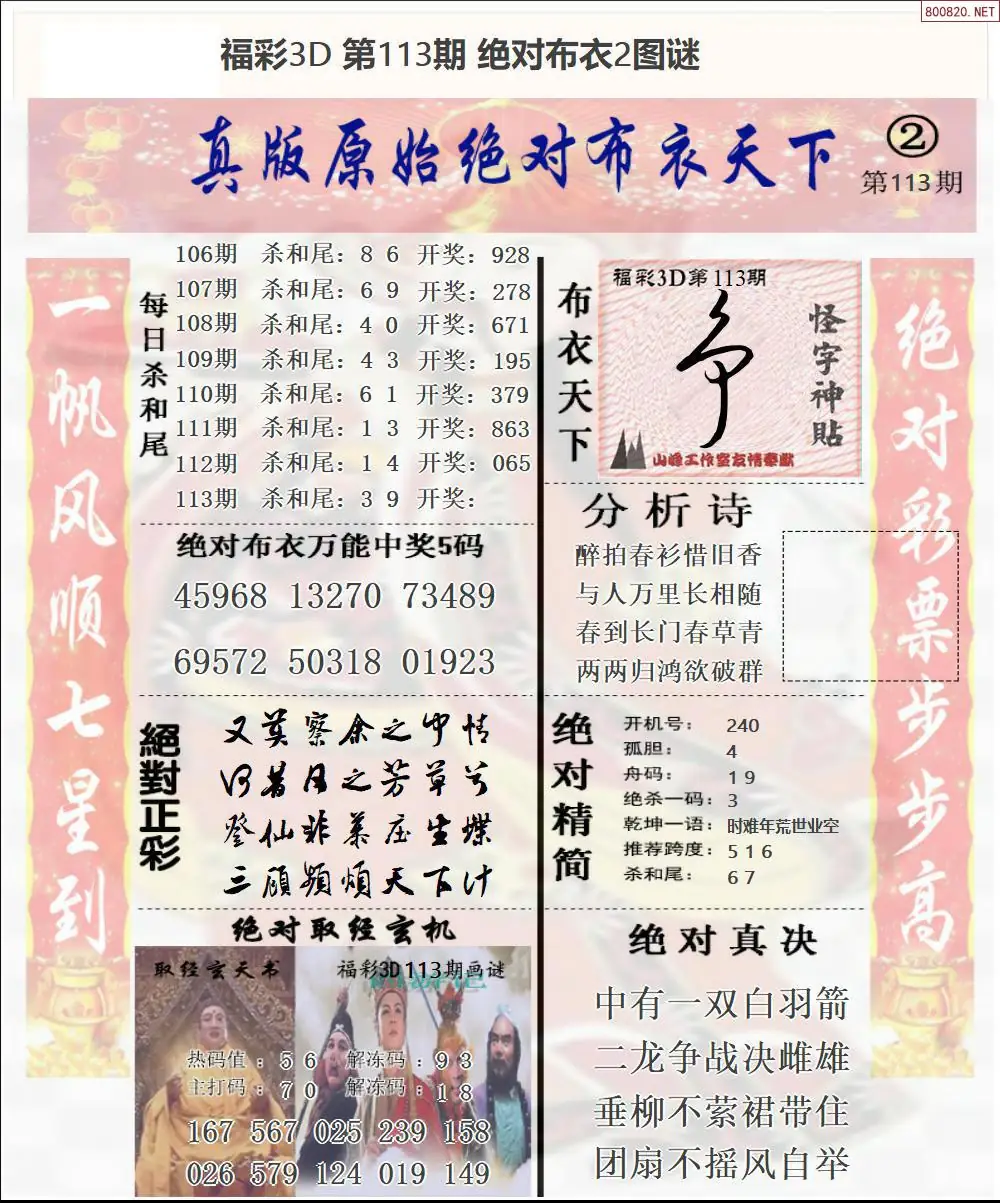 800820.NET
福彩3D 第113期 绝对布衣2图谜
真版原始绝对布衣天下
②
第113期
一帆风顺七星到
每日杀和尾
106期 杀和尾：8 6 开奖：928
107期 杀和尾：6 9 开奖：278
108期 杀和尾：4 0 开奖：671
109期 杀和尾：4 3 开奖：195
110期 杀和尾：6 1 开奖：379
111期 杀和尾：1 3 开奖：863
112期 杀和尾：1 4 开奖：065
113期 杀和尾：3 9 开奖：
绝对布衣万能中奖5码
45968 13270 73489
69572 50318 01923
絕對正彩
又莫察余之中情
何昔日之芳草兮
登仙非慕庄生蝶
三顾频烦天下计
绝对取经玄机
取经玄天书
福彩3D113期画谜
热码值：5 6 解冻码：9 3
主打码：7 0 解冻码：1 8
167 567 025 239 158
026 579 124 019 149
布衣天下
福彩3D第113期
怪字神貼
山峰工作室友情奉献
分析诗
醉拍春衫惜旧香
与人万里长相随
春到长门春草青
两两归鸿欲破群
绝对精简
开机号： 240
孤胆： 4
舟码： 1 9
绝杀一码：3
乾坤一语：时难年荒世业空
推荐跨度：5 1 6
杀和尾： 6 7
绝对真决
中有一双白羽箭
二龙争战决雌雄
垂柳不萦裙带住
团扇不摇风自举
绝对彩票步步高